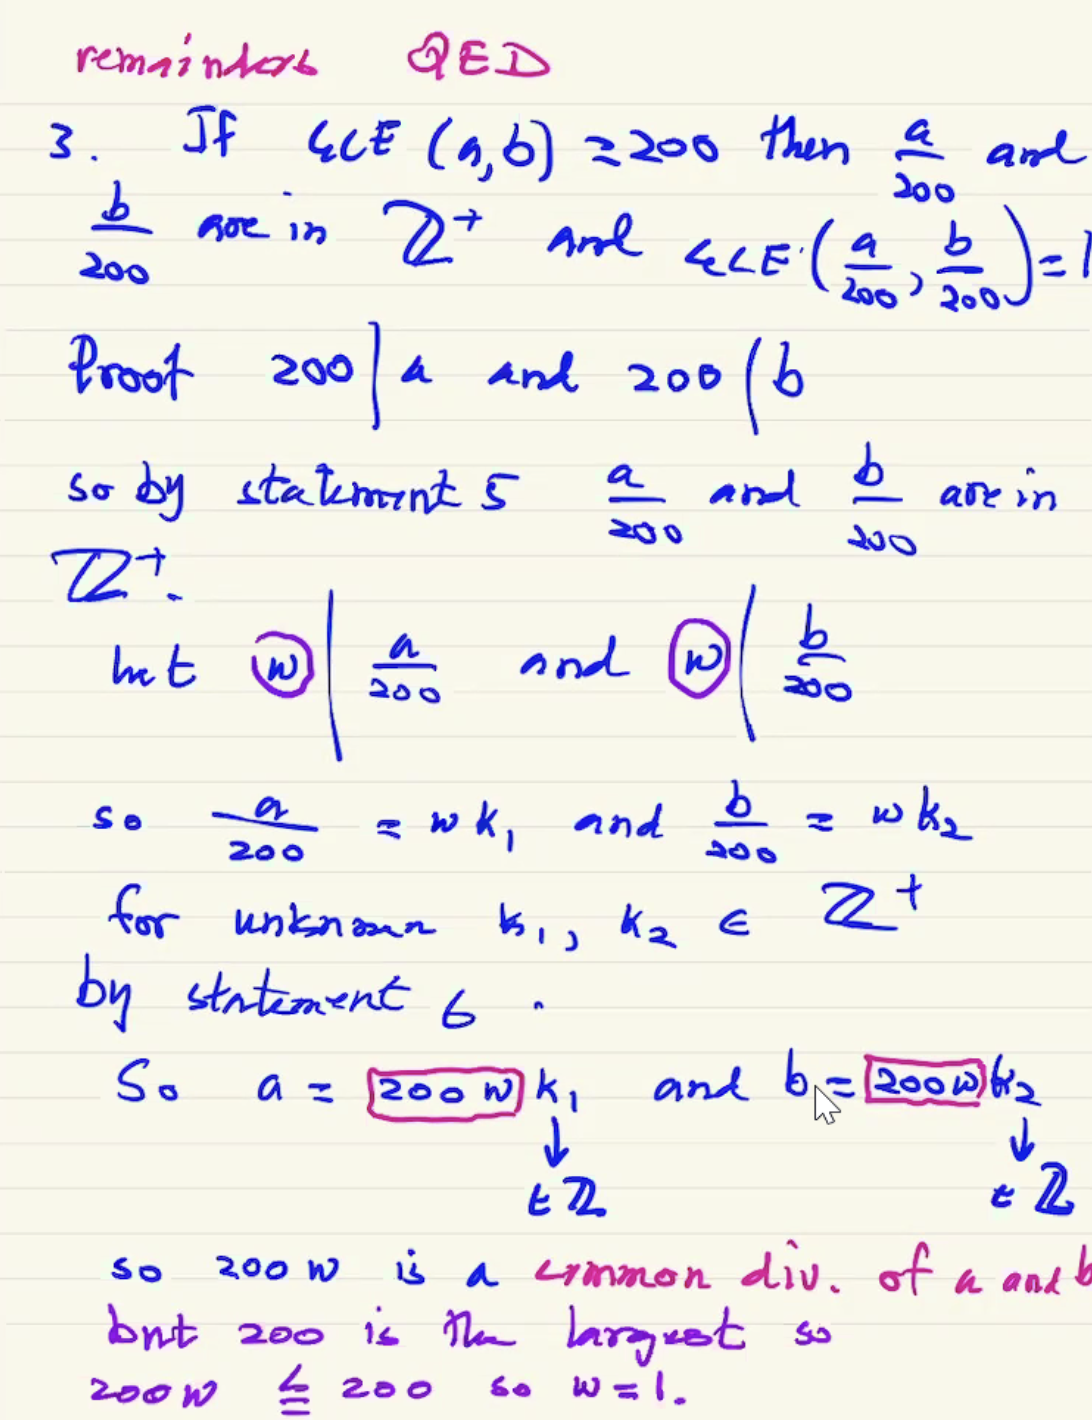 remainders QED
3. If GCF (a,b) = 200 then a/200 and
b/200 are in ℤ⁺ and GCF (a/200, b/200) = 1
Proof 200 | a and 200 | b
so by statement 5 a/200 and b/200 are in
ℤ⁺.
Let w | a/200 and w | b/200
so a/200 = w k₁ and b/200 = w k₂
for unknown k₁, k₂ ∈ ℤ⁺
by statement 6.
So a = 200 w k₁ and b = 200 w k₂
↓ ↓
∈ ℤ ∈ ℤ
so 200 w is a common div. of a and b
but 200 is the largest so
200 w ≤ 200 so w = 1.